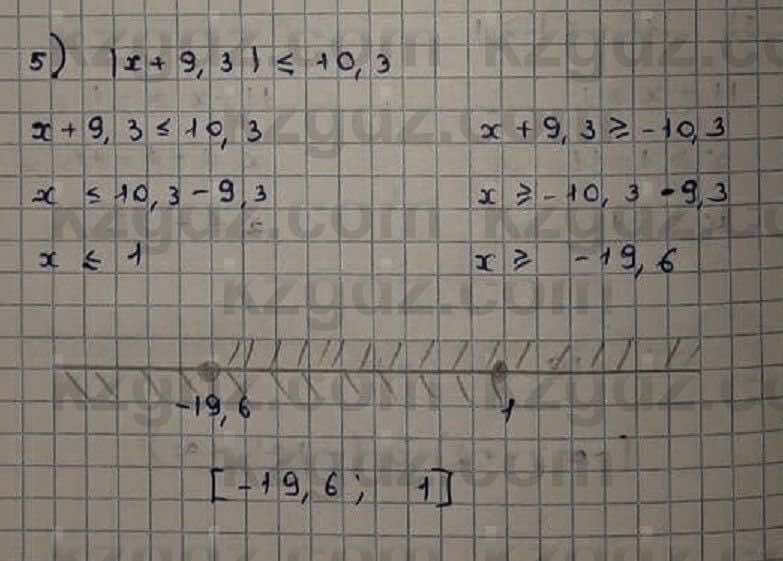 5) |x + 9,3| ≤ 10,3
x + 9,3 ≤ 10,3
x ≤ 10,3 - 9,3
x ≤ 1
x + 9,3 ≥ -10,3
x ≥ -10,3 - 9,3
x ≥ -19,6
-19,6 1
[-19,6; 1]
kzgdz.com